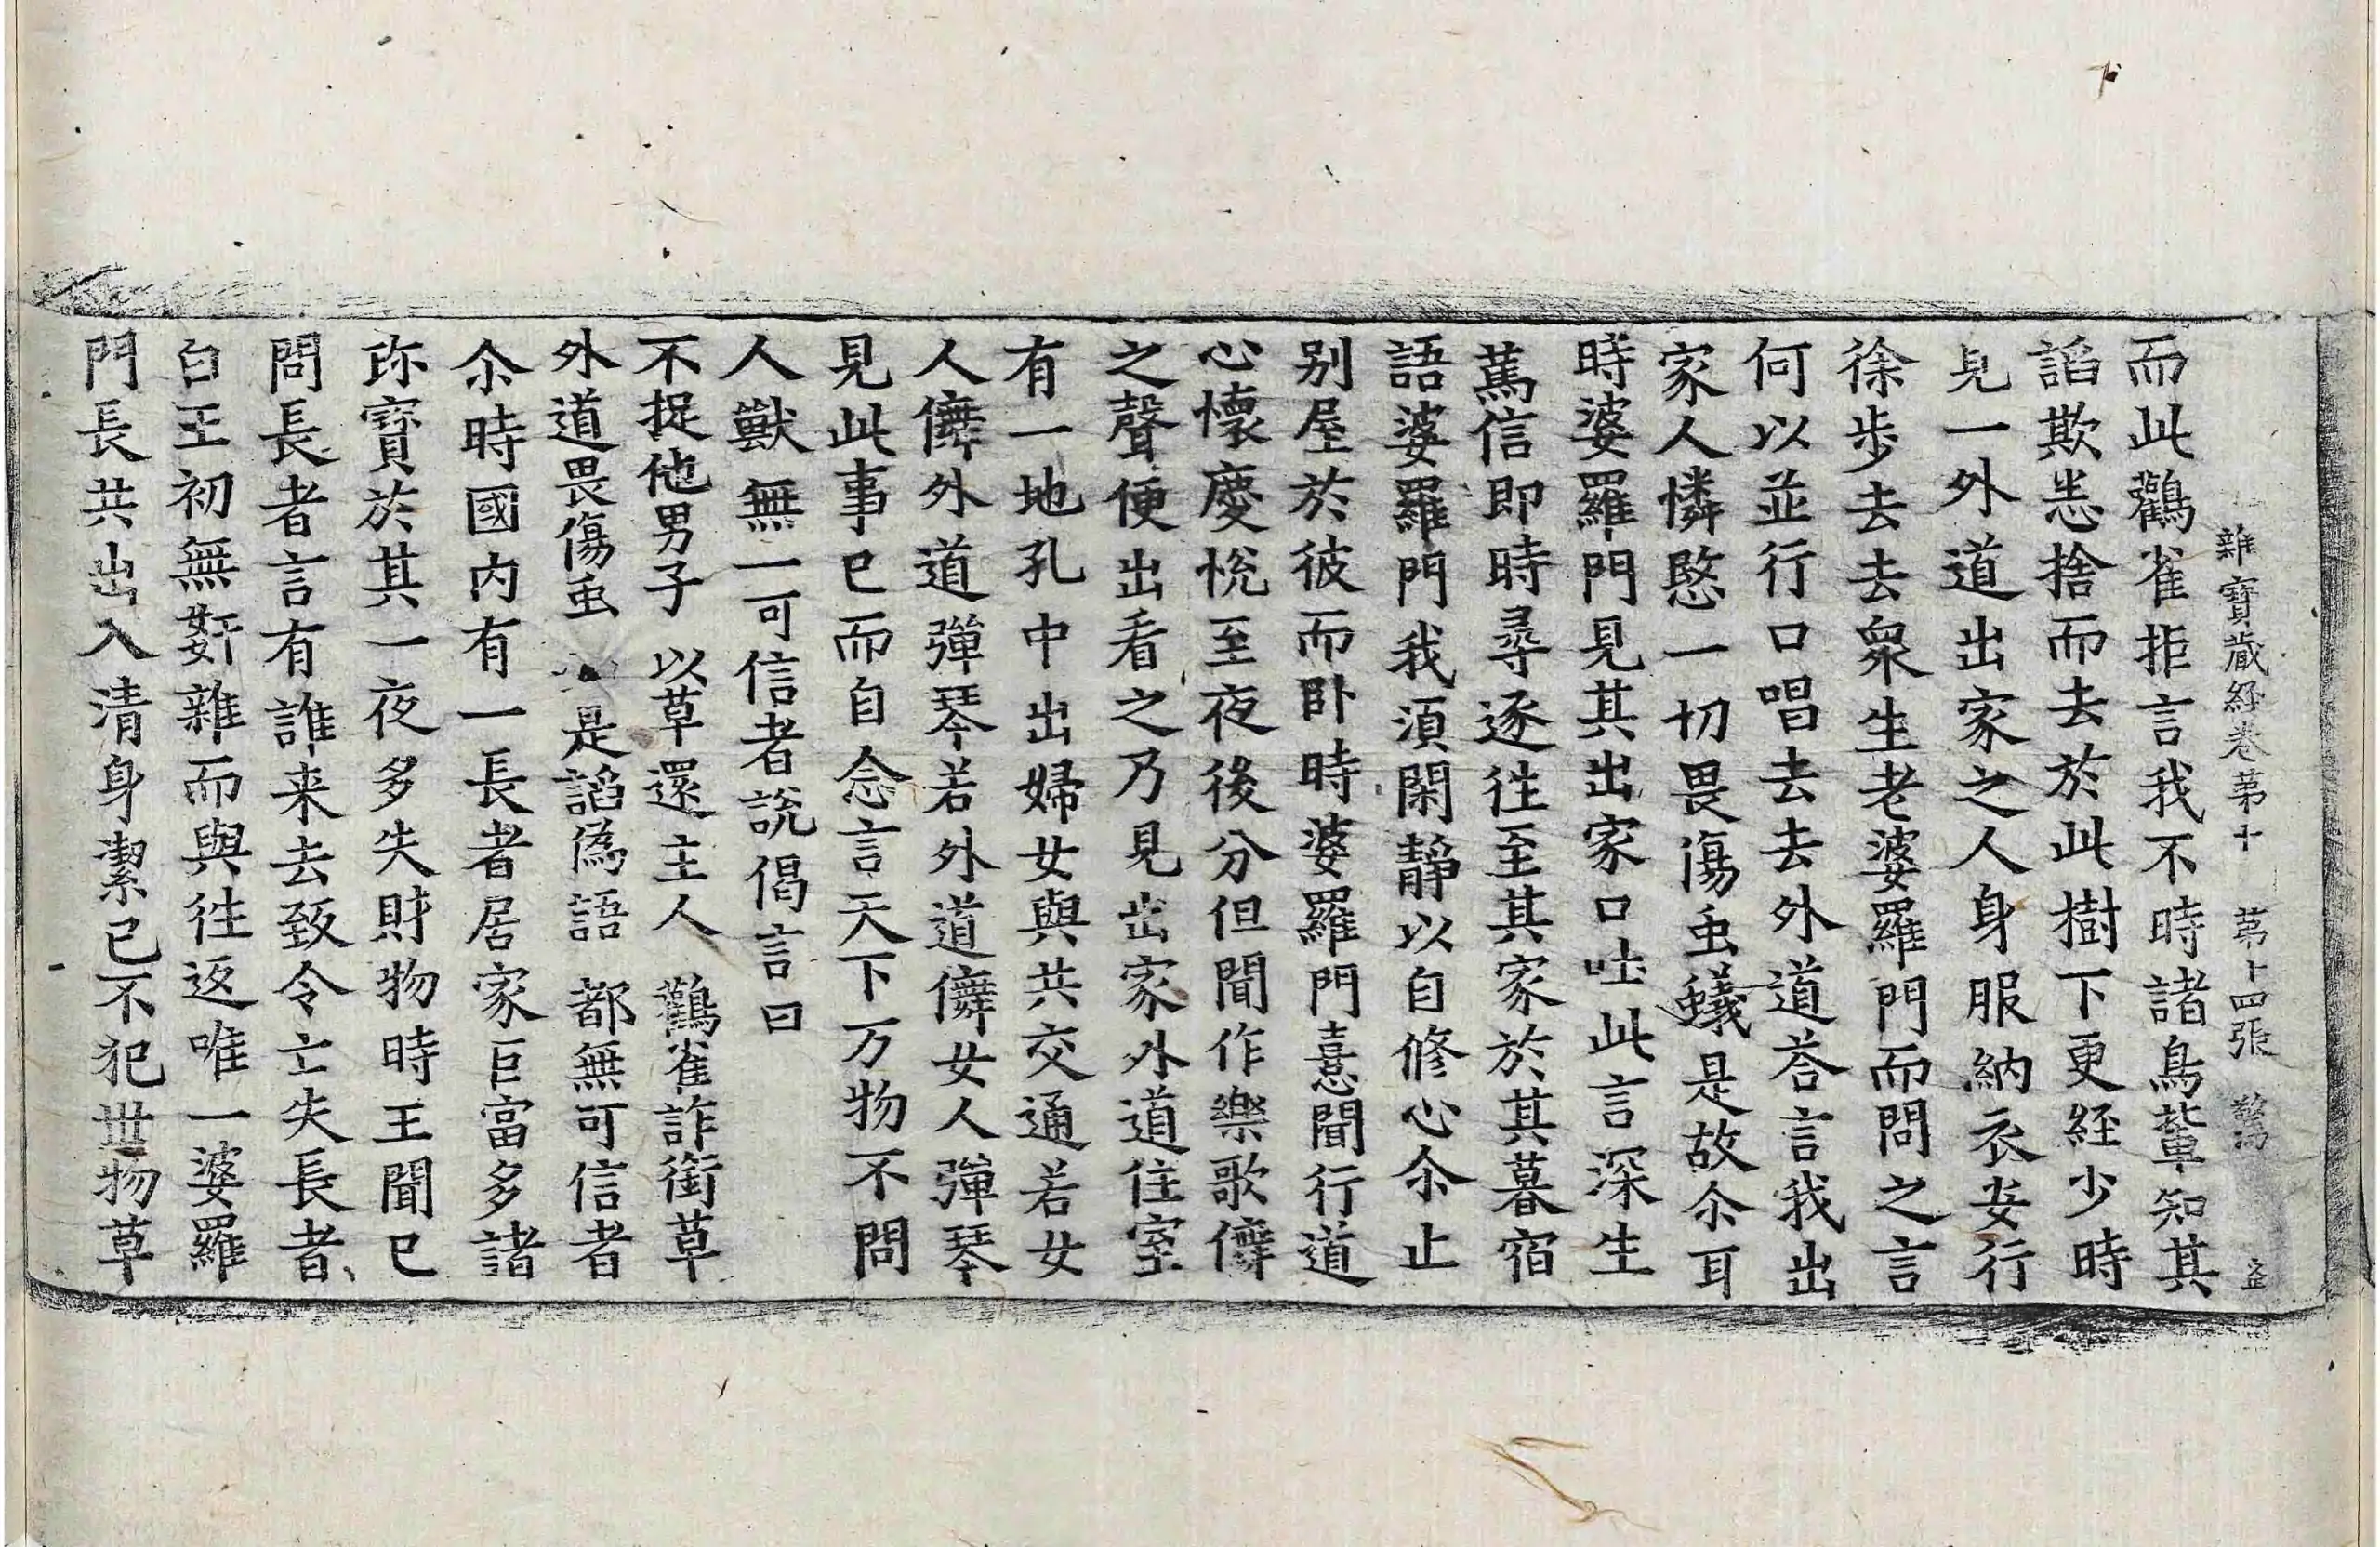 雜寶藏経卷苐十　苐十四張　驚
而此鸛雀拒言我不時諸鳥輩知其
謟欺恙捨而去於此樹下更経少時
見一外道出家之人身服納衣安行
徐步去去衆生老婆羅門而問之言
何以並行口唱去去外道荅言我出
家人憐愍一切畏傷虫蟻是故尒耳
時婆羅門見其出家口吐此言深生
萬信即時尋逐徃至其家於其暮宿
語婆羅門我須閑靜以自修心尒止
別屋於彼而卧時婆羅門憙聞行道
心懷慶悅至夜後分但聞作樂歌儛
之聲便出看之乃見出家外道住室
有一地孔中出婦女與共交通若女
人儛外道彈琴若外道儛女人彈琴
見此事已而自念言天下万物不問
人獸無一可信者說偈言曰
不捉他男子　以草還主人　鸛雀詐銜草
外道畏傷虫　是謟偽語　都無可信者
尒時國內有一長者居家巨富多諸
珎寶於其一夜多失財物時王聞已
問長者言有誰来去致令亡失長者
白王初無姧雜而與徃返唯一婆羅
門長共出入清身潔已不犯丗物草